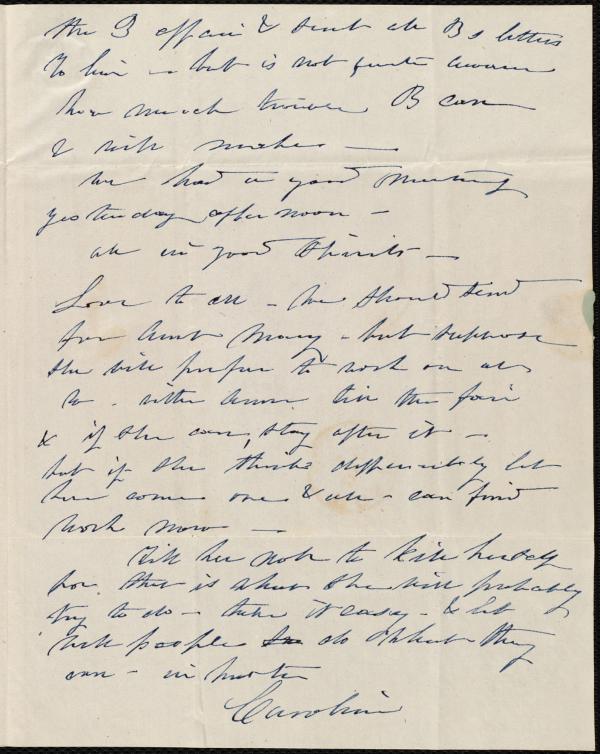 the B affair & sent all Bs letters
to him - but is not quite aware
how much trouble B can
& will make -
We had a good meeting
yesterday afternoon -
all in good spirits -
Love to all - We should send
for Aunt Mary - but suppose
she will prefer to work on as
is. with Anne till the fair
& if she can, stay after it -
but if she thinks differently let
her come over & all - can find
work now -
Tell her not to kill herself
for that is what she will probably
try to do - take it easy - & let
people do what they
can - in haste
Caroline